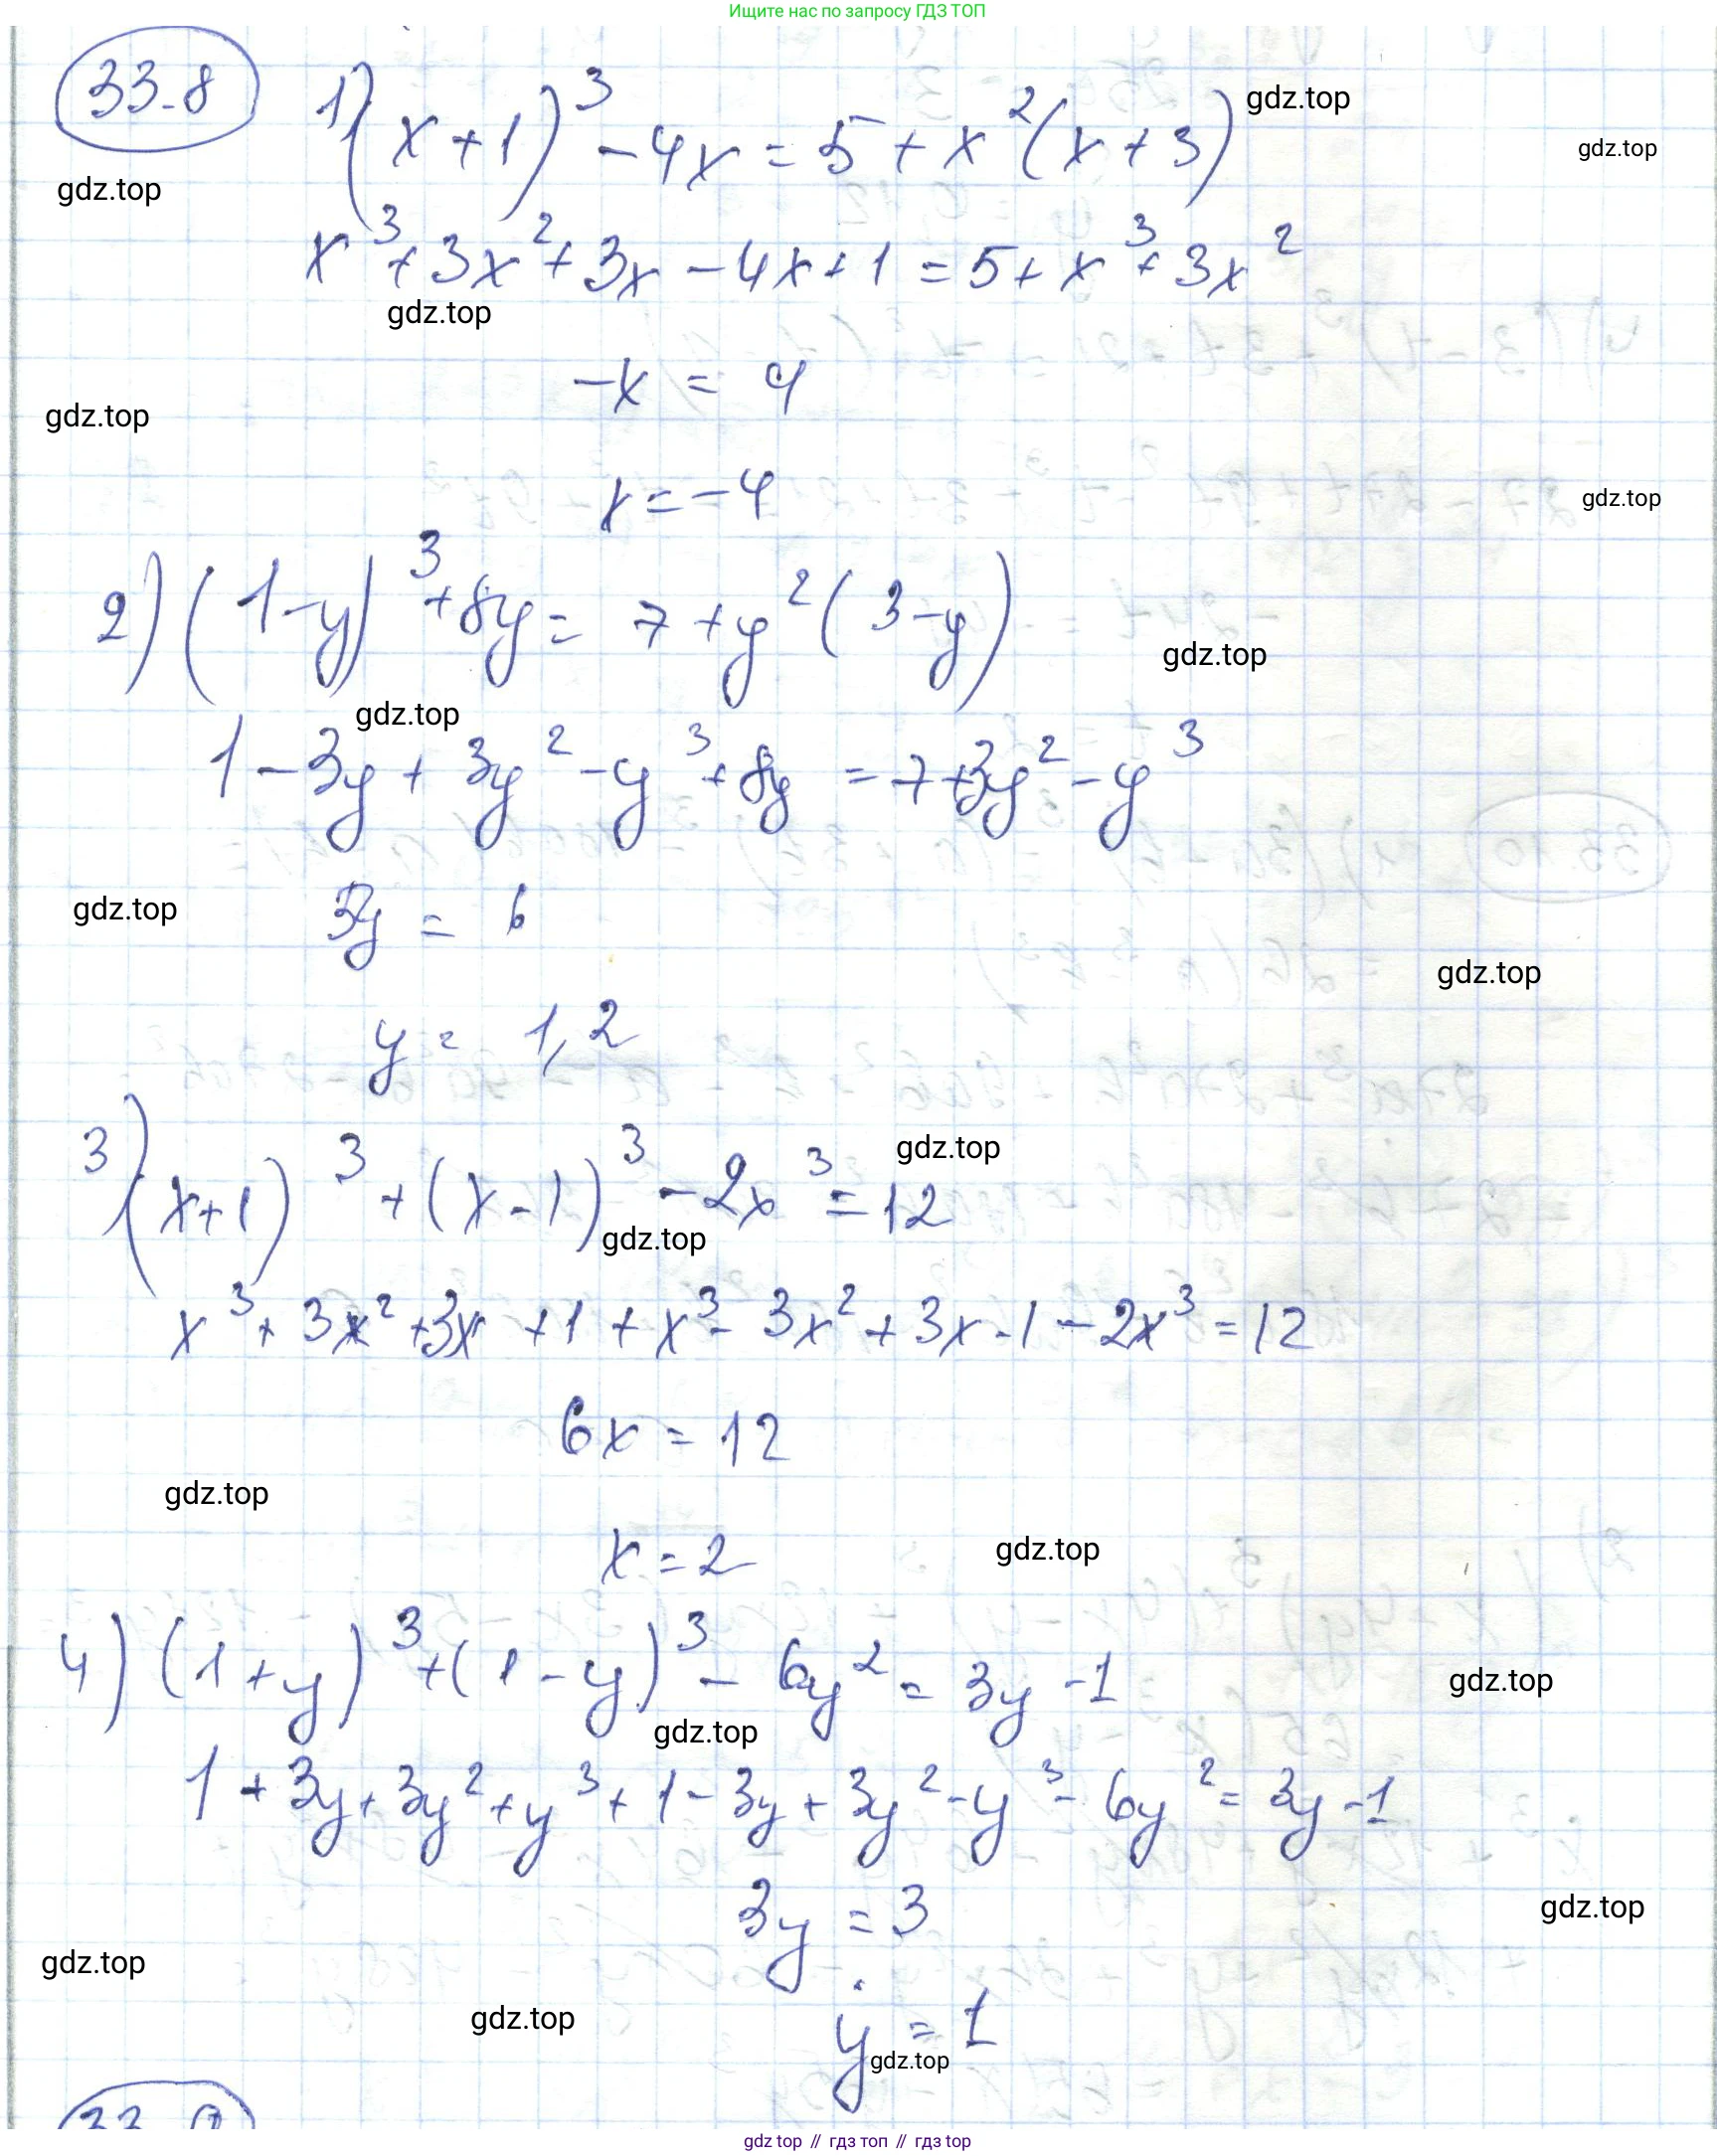 Ищите нас по запросу ГДЗ ТОП
33.8
1) (x+1)³ - 4x = 5 + x²(x+3)
gdz.top
gdz.top
gdz.top
x³ + 3x² + 3x - 4x + 1 = 5 + x³ + 3x²
gdz.top
-x = 4
gdz.top
x = -4
gdz.top
2) (1-y)³ + 8y = 7 + y²(3-y)
gdz.top
gdz.top
1 - 3y + 3y² - y³ + 8y = 7 + 3y² - y³
gdz.top
5y = 6
gdz.top
y = 1,2
3) (x+1)³ + (x-1)³ - 2x³ = 12
gdz.top
gdz.top
x³ + 3x² + 3x + 1 + x³ - 3x² + 3x - 1 - 2x³ = 12
6x = 12
gdz.top
x = 2
gdz.top
4) (1+y)³ + (1-y)³ - 6y² = 3y - 1
gdz.top
gdz.top
1 + 3y + 3y² + y³ + 1 - 3y + 3y² - y³ - 6y² = 3y - 1
3y = 3
gdz.top
gdz.top
y = 1
gdz.top
gdz.top
gdz top // гдз топ // гдз top